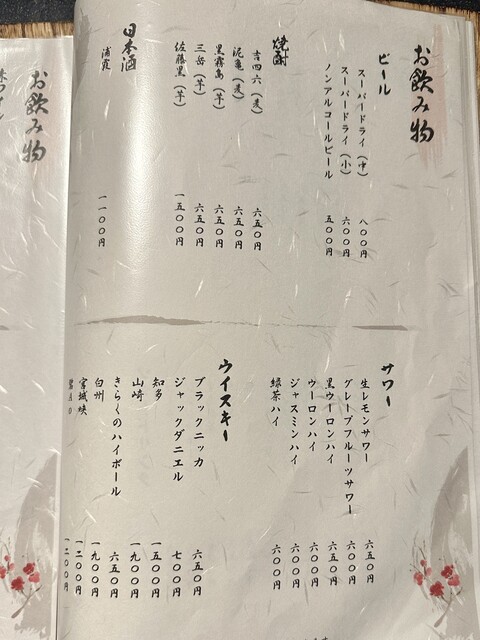 お飲み物
ビール
スーパードライ（中） 八〇〇円
スーパードライ（小） 六〇〇円
ノンアルコールビール 五〇〇円
焼酎
吉四六（麦） 六五〇円
泥亀（麦） 六五〇円
黒霧島（芋） 六五〇円
三岳（芋） 六五〇円
佐藤黒（芋） 一五〇〇円
日本酒
浦霞 一一〇〇円
サワー
生レモンサワー 六五〇円
グレープフルーツサワー 六〇〇円
黒ウーロンハイ 六五〇円
ウーロンハイ 六〇〇円
ジャスミンハイ 六〇〇円
緑茶ハイ 六〇〇円
ウイスキー
ブラックニッカ 六五〇円
ジャックダニエル 七〇〇円
知多 一五〇〇円
山崎 一九〇〇円
きらくのハイボール 六五〇円
白州 一九〇〇円
宮城峡 一二〇〇円
一二〇〇円
お飲み物